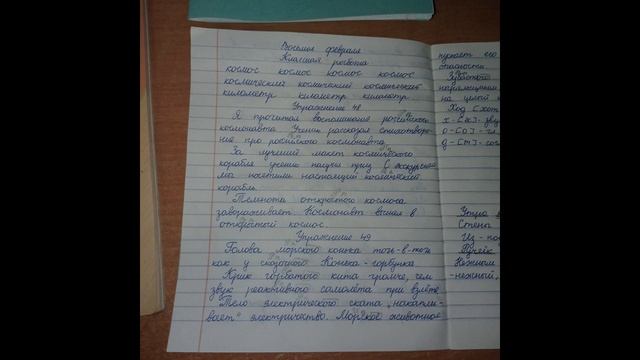 Восьмое февраля
Классная работа
космос космос космос космос
космический космический космический
километр километр километр
Упражнение 48
Я прочитал воспоминание российского
космонавта Ученик рассказал стихотворе-
ние про российского космонавта.
За лучший макет космического
корабля ученик получил приз С экскурсией
мы посетили настоящий космический
корабль.
Темнота открытого космоса
завораживает Космонавт вышел в
открытый космос.
Упражнение 49
Голова морского конька точь-в-точь
как у сказочного Конька-горбунка
Крик горбатого кита громче, чем
звук реактивного самолёта при взлёте.
Тело электрического ската "накапли-
вает" электричество. Морское животное
пускает его
опасности.
Зубатого
на целой
Ход [хот
х-[х]-зву
о-[о]-гл
д-[т]-сог
Утро в
Стена
Из-по
Ручей
Нежный
-нежный,